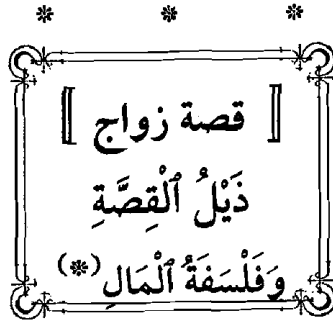 * * *
[ قصة زواج ]
ذَيْلُ ٱلْقِصَّةِ
وَفَلْسَفَةُ ٱلْمَالِ(*)